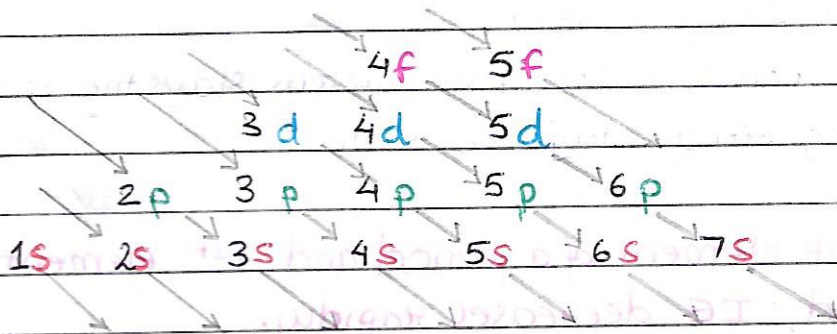 4f 5f
3d 4d 5d
2p 3p 4p 5p 6p
1s 2s 3s 4s 5s 6s 7s